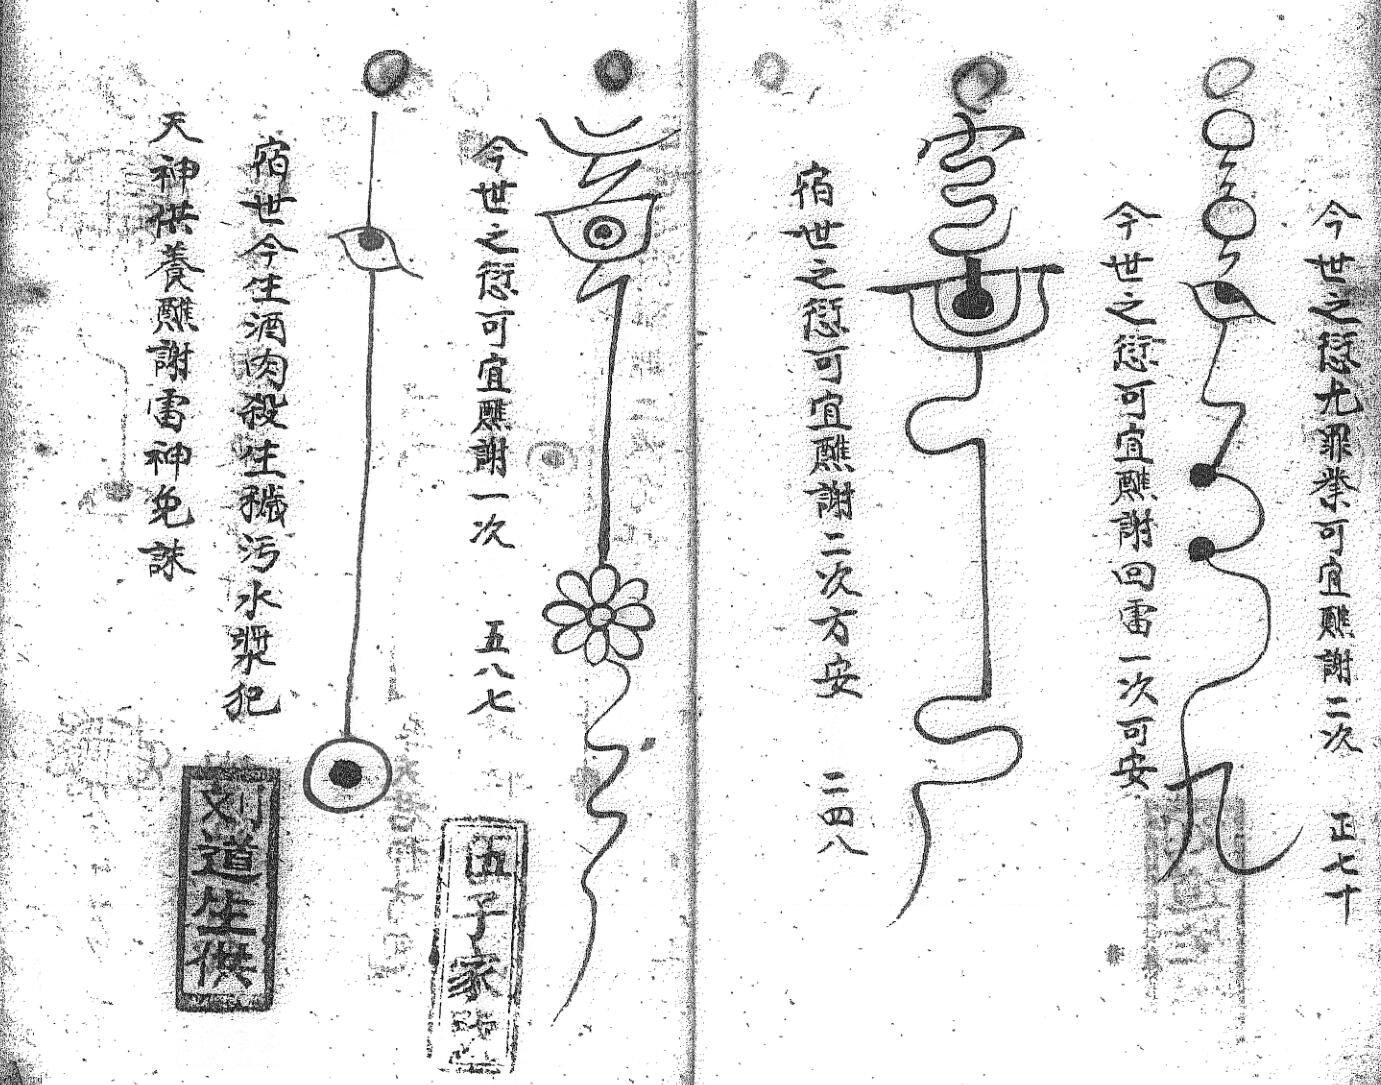 今世之愆尤罪業可宜醮謝二次 正七十
今世之愆可宜醮謝回雷一次可安
宿世之愆可宜醮謝二次方安 二四八
今世之愆可宜醮謝一次 五八七
伍子家
宿世今生酒肉殺生穢污水漿犯
刘道生供
天神供養醮謝雷神免誅